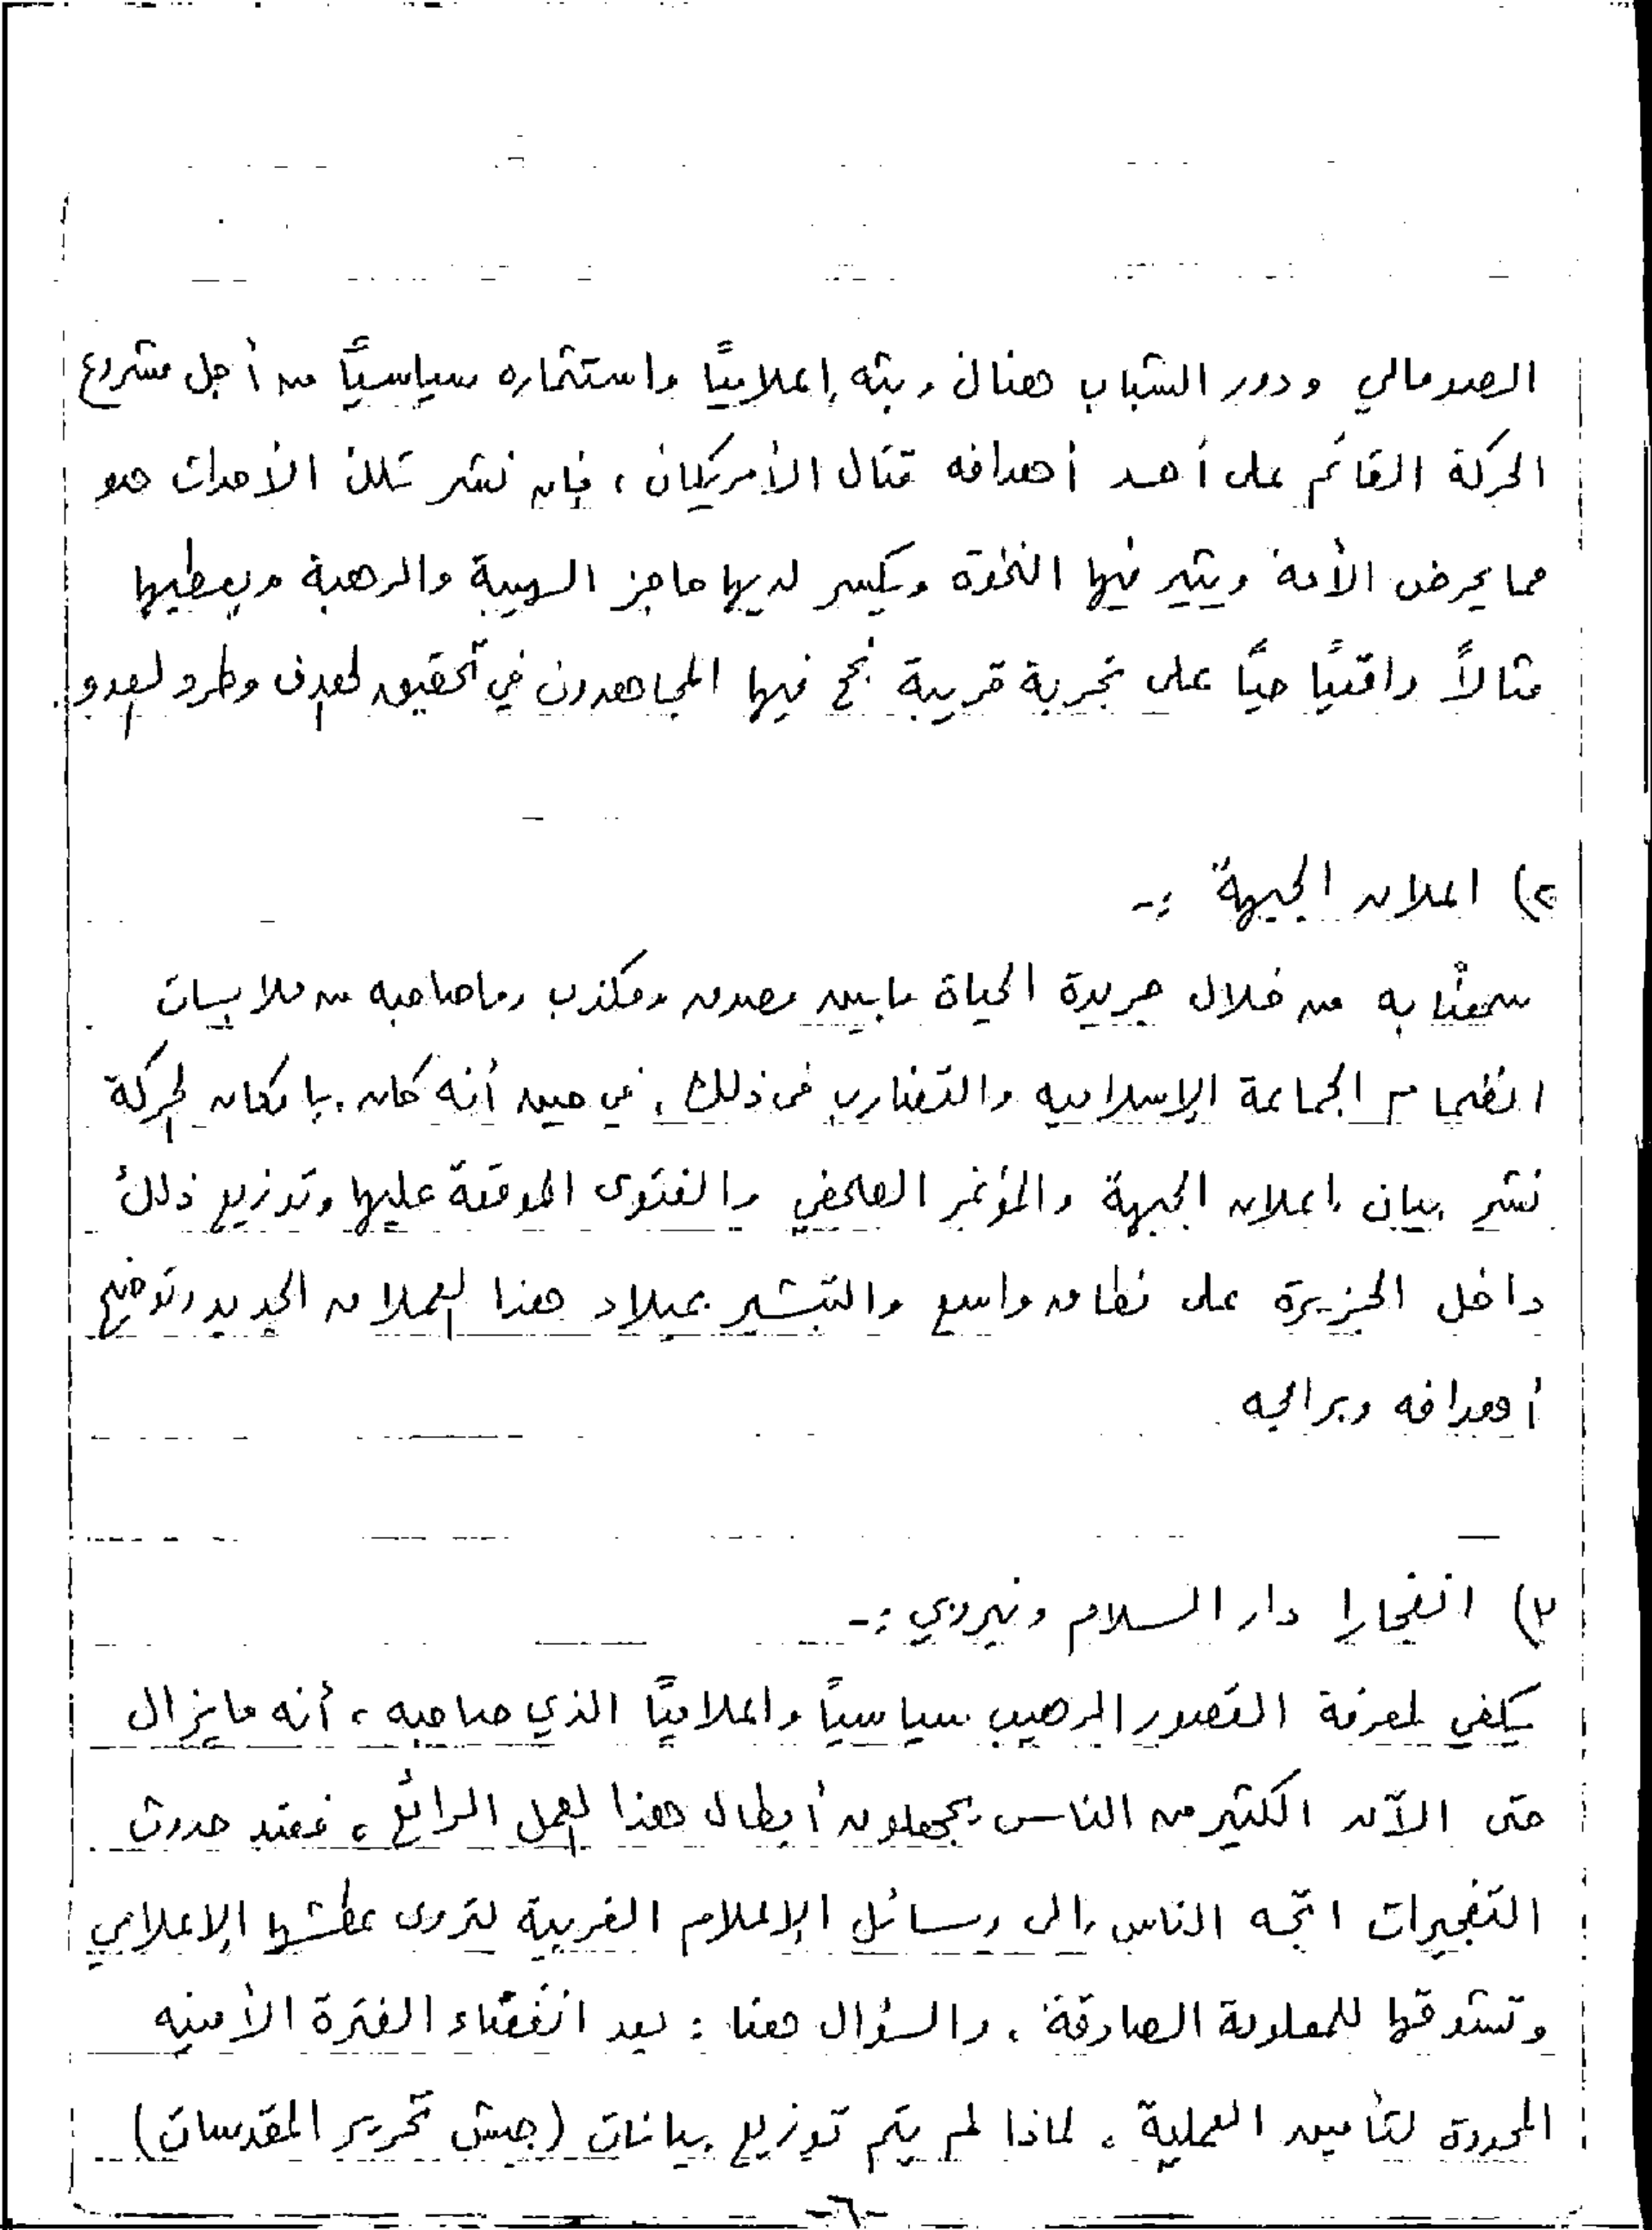 الصومالي ودور الشباب هناك وبثه إعلاميًا واستثماره سياسيًا من أجل مشروع
الحركة القائم على أحد أهدافه قتال الأمريكان، فإن نشر تلك الأحداث هو
مما يحرض الأمة ويثير فيها النخوة ويكسر لديها حاجز الهيبة والرهبة ويعطيها
مثالاً واقعيًا حيًا على تجربة قريبة نجح فيها المجاهدون في تحقيق الهدف وطرد العدو.
٢) اعلان الجبهة :-
سمعنا به من خلال جريدة الحياة مابين مصدق ومكذب وما صاحبه من ملابسات
انضمام الجماعة الإسلاميه والتضارب في ذلك، في حين أنه كان بإمكان الحركة
نشر بيان إعلان الجبهة والمؤتمر الصحفي والفتوى الموقعة عليها وتوزيع ذلك
داخل الجزيرة على نطاق واسع والتبشير بميلاد هذا العملاق الجديد وتوضيح
أهدافه وبرامجه
٣) انفجارا دار السلام ونيروبي :-
يكفي لمعرفة القصور الرهيب سياسياً واعلاميًا الذي صاحبه، أنه مايزال
حتى الآن الكثير من الناس يجهلون أبطال هذا العمل الرائع، فعند حدوث
التفجيرات اتجه الناس إلى وسائل الإعلام الغربية لتروى عطشها الإعلامي
وتشوقها للمعلومة الصادقة، والسؤال هنا : بعد انقضاء الفترة الأمنيه
المحددة لتأمين العملية، لماذا لم يتم توزيع بيانات (جيش تحرير المقدسات)
-٦-